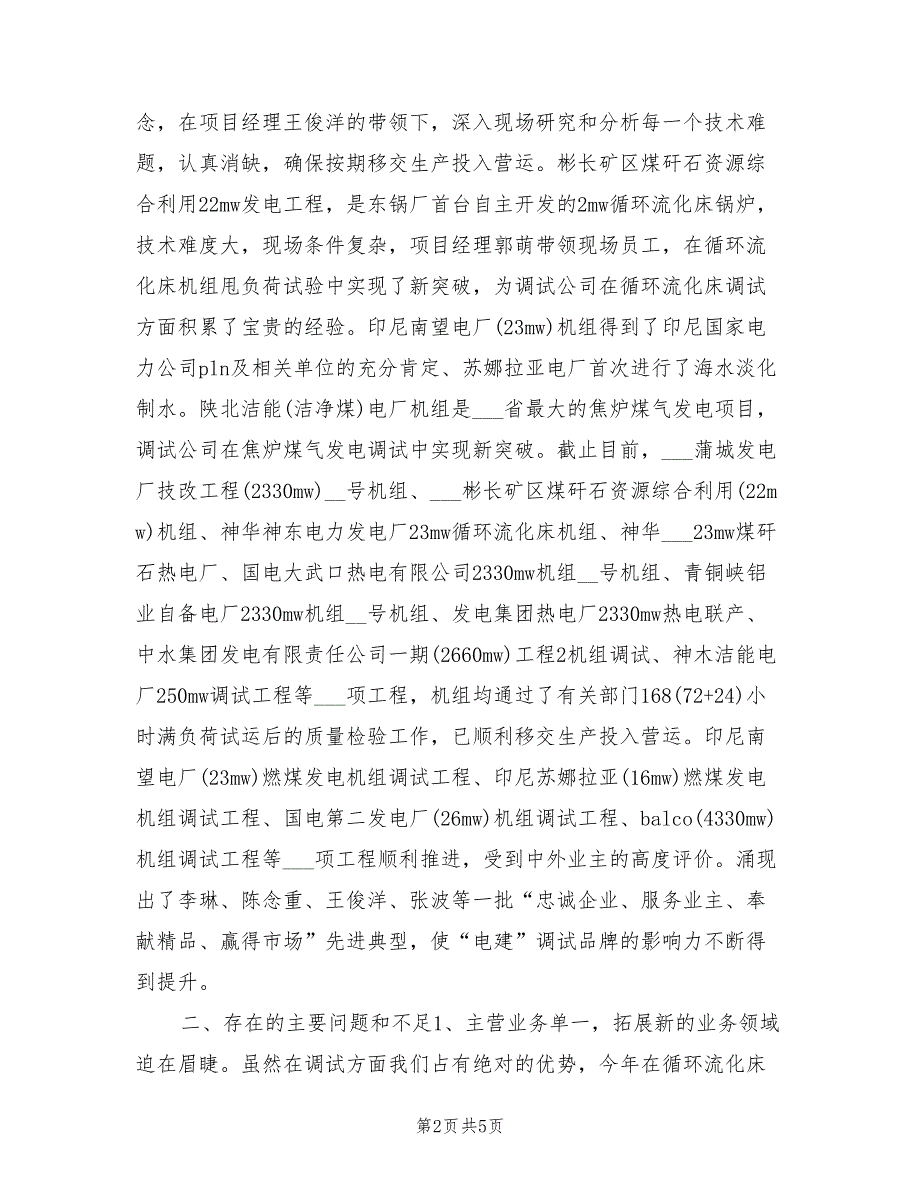 念，在项目经理王俊洋的带领下，深入现场研究和分析每一个技术难
题，认真消缺，确保按期移交生产投入营运。彬长矿区煤矸石资源综
合利用22mw发电工程，是东锅厂首台自主开发的2mw循环流化床锅炉，
技术难度大，现场条件复杂，项目经理郭萌带领现场员工，在循环流
化床机组甩负荷试验中实现了新突破，为调试公司在循环流化床调试
方面积累了宝贵的经验。印尼南望电厂(23mw)机组得到了印尼国家电
力公司pln及相关单位的充分肯定、苏娜拉亚电厂首次进行了海水淡化
制水。陕北洁能(洁净煤)电厂机组是___省最大的焦炉煤气发电项目，
调试公司在焦炉煤气发电调试中实现新突破。截止目前，___蒲城发电
厂技改工程(2330mw)__号机组、___彬长矿区煤矸石资源综合利用(22m
w)机组、神华神东电力发电厂23mw循环流化床机组、神华___23mw煤矸
石热电厂、国电大武口热电有限公司2330mw机组__号机组、青铜峡铝
业自备电厂2330mw机组__号机组、发电集团热电厂2330mw热电联产、
中水集团发电有限责任公司一期(2660mw)工程2机组调试、神木洁能电
厂250mw调试工程等___项工程，机组均通过了有关部门168(72+24)小
时满负荷试运后的质量检验工作，已顺利移交生产投入营运。印尼南
望电厂(23mw)燃煤发电机组调试工程、印尼苏娜拉亚(16mw)燃煤发电
机组调试工程、国电第二发电厂(26mw)机组调试工程、balco(4330mw)
机组调试工程等___项工程顺利推进，受到中外业主的高度评价。涌现
出了李琳、陈念重、王俊洋、张波等一批“忠诚企业、服务业主、奉
献精品、赢得市场”先进典型，使“电建”调试品牌的影响力不断得
到提升。
二、存在的主要问题和不足1、主营业务单一，拓展新的业务领域
迫在眉睫。虽然在调试方面我们占有绝对的优势，今年在循环流化床
第2页共5页